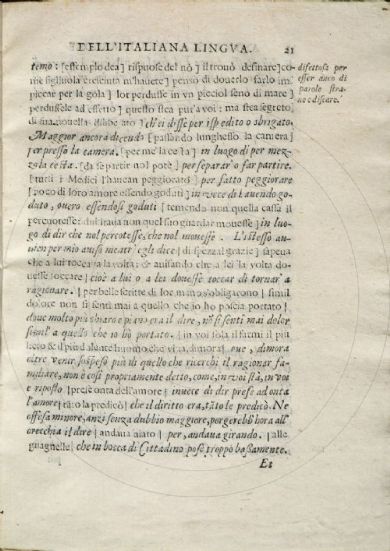 DELL'ITALIANA LINGVA. 21
temo: [essempio dea] rispuose del nò] il trouò desinare] co-
me figliuola cresciuta m'hauete] penso di douerlo farlo im
piccar per la gola] lor perdusse in vn picciol seno di mare]
perdussele ad effetto] questo stea pur'a voi: ma stea segreto,
di sua nouella ] Ecci disse per ispedito o sbrigato.
Maggior ancora dicendo [passando lunghesso la camera]
per presso la camera. [per me la ceста] in luogo di per mez-
[da se partir nol potè] per separar' o far partire.
[tutti i Medici l'hauean peggiorato] per fatto peggiorare
[poco di loro amore essendo goduti] in vece di hauendo go-
duto, ouero essendosi goduti [temendo non quella cassa il
percuotesse: dubitaua non quel suo guardar mouesse] in luo-
go di dir che nol percotesse, che nol mouesse. L'istesso au-
uien per mio auiso mentr'egli dice [di spezial grazie] sapeua
che a lui toccaua la volta: & auisando che a lei la volta do-
uesse toccare] cioè a lui o a lei douesse toccar di tornar' a
ragionare. [per belle scritte di lor mano s'obligarono] simil
dolore non si sentì mai a quello che io ho poscia portato]
doue molto più chiaro e piano era il dire, nō si senti mai dolor
simil' a quello che io hò portato. [in voi sola il farmi il più
lieto & il più dolente huomo che viua, dimora] oue, dimora
oltre venir sospeso più di quello che ricerchi il ragionar fa-
migliare, non è così propriamente detto, come, in voi stà, in voi
è riposto [prese onta dell'amore] inuece di dir prese ad onta
l'amore; tāto la predicò] che il diritto era, tāto le predicò. Ne
offesa minore, anzi senza dubbio maggiore, porgerebbe hora all'
orecchia il dire [andaua aiato] per, andaua girando. [alle
guagnelle] che in bocca di Cittadino pose troppo bassamente.
Et
difettose per
esser anco di
parole stra-
ne e discare.